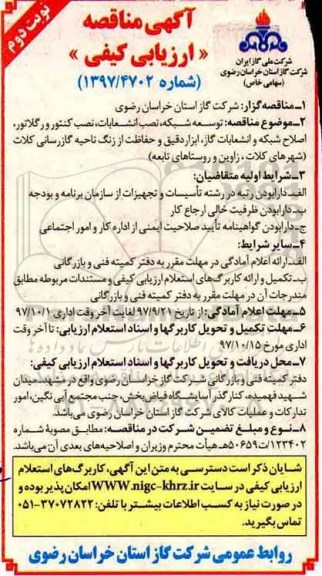 نوبت دوم
آگهی مناقصه
« ارزیابی کیفی »
(شماره ۱۳۹۷/۴۷۰۲)
شرکت ملی گاز ایران
شرکت گاز استان خراسان رضوی
(سهامی خاص)
۱ـ مناقصه گزار: شرکت گاز استان خراسان رضوی
۲ـ موضوع مناقصه: توسعه شبکه، نصب انشعابات، نصب کنتور و رگلاتور،
اصلاح شبکه و انشعابات گاز، ابزار دقیق و حفاظت از زنگ ناحیه گازرسانی کلات
(شهرهای کلات ، زاوین و روستاهای تابعه)
۳ـ شرایط اولیه متقاضیان:
الف ـ دارا بودن رتبه در رشته تأسیسات و تجهیزات از سازمان برنامه و بودجه
ب ـ دارا بودن ظرفیت خالی ارجاع کار
ج ـ دارا بودن گواهینامه تأیید صلاحیت ایمنی از اداره کار و امور اجتماعی
۴ـ سایر شرایط:
الف ـ ارائه اعلام آمادگی در مهلت مقرر به دفتر کمیته فنی و بازرگانی
ب ـ تکمیل و ارائه کاربرگ های استعلام ارزیابی کیفی و مستندات مربوطه مطابق
مندرجات آن در مهلت مقرر به دفتر کمیته فنی و بازرگانی
۵ـ مهلت اعلام آمادگی: از تاریخ ۹۷/۹/۲۱ لغایت آخر وقت اداری ۹۷/۱۰/۱
۶ـ مهلت تکمیل و تحویل کاربرگها و اسناد استعلام ارزیابی: تا آخر وقت
اداری مورخ ۹۷/۱۰/۱۵
۷ـ محل دریافت و تحویل کاربرگها و اسناد استعلام ارزیابی کیفی:
دفتر کمیته فنی و بازرگانی شرکت گاز خراسان رضوی واقع در مشهد ـ میدان
شهید فهمیده، کنار گذر آسایشگاه فیاض بخش، جنب مجتمع آبی نگین، امور
تدارکات و عملیات کالای شرکت گاز استان خراسان رضوی می باشد.
۸ـ نوع و مبلغ تضمین شرکت در مناقصه: مطابق مصوبه شماره
۱۲۳۴۰۲/ت۵۰۶۵۹هـ هیأت محترم وزیران و اصلاحیه های بعدی آن می باشد.
شایان ذکر است دسترسی به متن این آگهی، کاربرگ های استعلام
ارزیابی کیفی در سایت WWW.nigc-khrz.ir امکان پذیر بوده و
در صورت نیاز به کسب اطلاعات بیشتر با تلفن: ۳۷۰۷۲۸۲۲-۰۵۱
تماس بگیرید.
روابط عمومی شرکت گاز استان خراسان رضوی